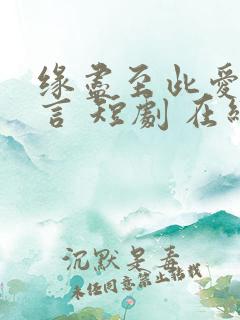 緣盡至此愛
言 短劇 在線
沉默是毒
未经同意禁止转载